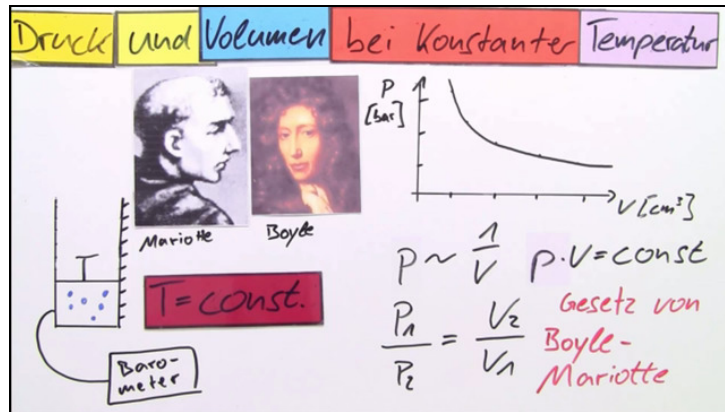 Druck und Volumen bei Konstanter Temperatur
Mariotte
Boyle
T = const.
Baro-
meter
P
[bar]
V [cm³]
p ~ 1/V
p · V = const
P₁/P₂ = V₂/V₁
Gesetz von
Boyle-
Mariotte